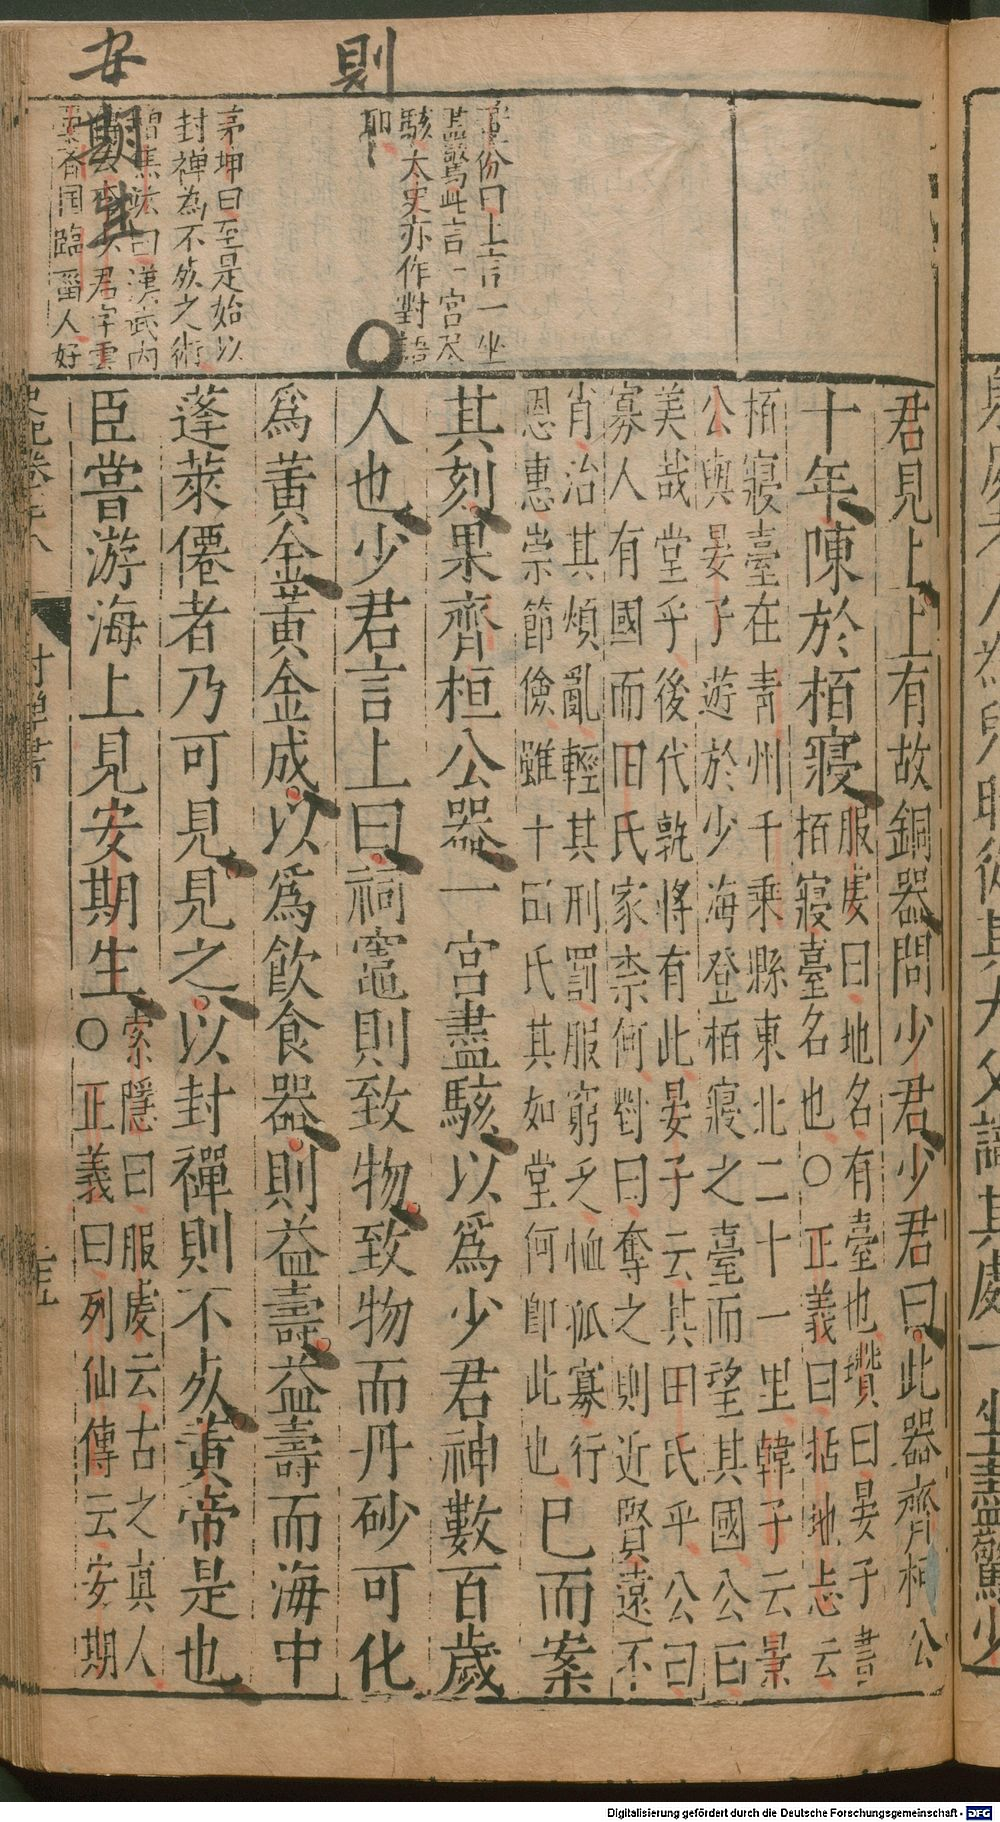 則
安期生
董份曰上言一坐
盡驚此言一宮尽
駭太史亦作對語
耶
茅坤曰至是始以
封禪為不死之術
君字雲
国臨畱人好
君見上上有故銅器問少君少君曰此器齊桓公
十年陳於栢寢
服虔曰地名有臺也瓚曰晏子書
栢寢臺名也○正義曰括地志云
栢寢臺在青州千乘縣東北二十一里韓子云景
公與晏子遊於少海登栢寢之臺而望其國公曰
美哉堂乎後代孰將有此晏子云其田氏乎公曰
寡人有國而田氏家柰何對曰奪之則近賢遠不
肖治其煩亂輕其刑罰服窮乏恤孤寡行
恩惠崇節儉雖十田氏其如堂何即此也
已而案
其刻果齊桓公器一宮盡駭以爲少君神數百歲
人也少君言上曰祠竈則致物致物而丹砂可化
爲黃金黃金成以爲飲食器則益壽益壽而海中
蓬萊僊者乃可見見之以封禪則不死黃帝是也
臣嘗游海上見安期生
索隱曰服虔云古之真人
○正義曰列仙傳云安期
封禪書
Digitalisierung gefördert durch die Deutsche Forschungsgemeinschaft - DFG